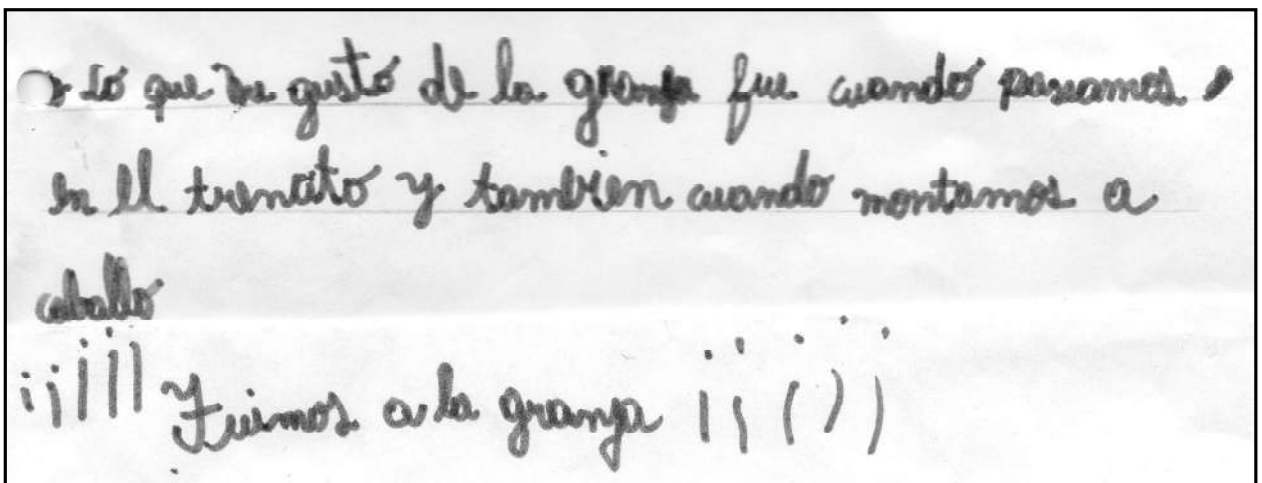 Lo que me gustó de la granja fue cuando paseamos
en el trencito y tambien cuando montamos a
caballo
¡¡¡¡¡ Fuimos a la granja ¡¡¡¡¡